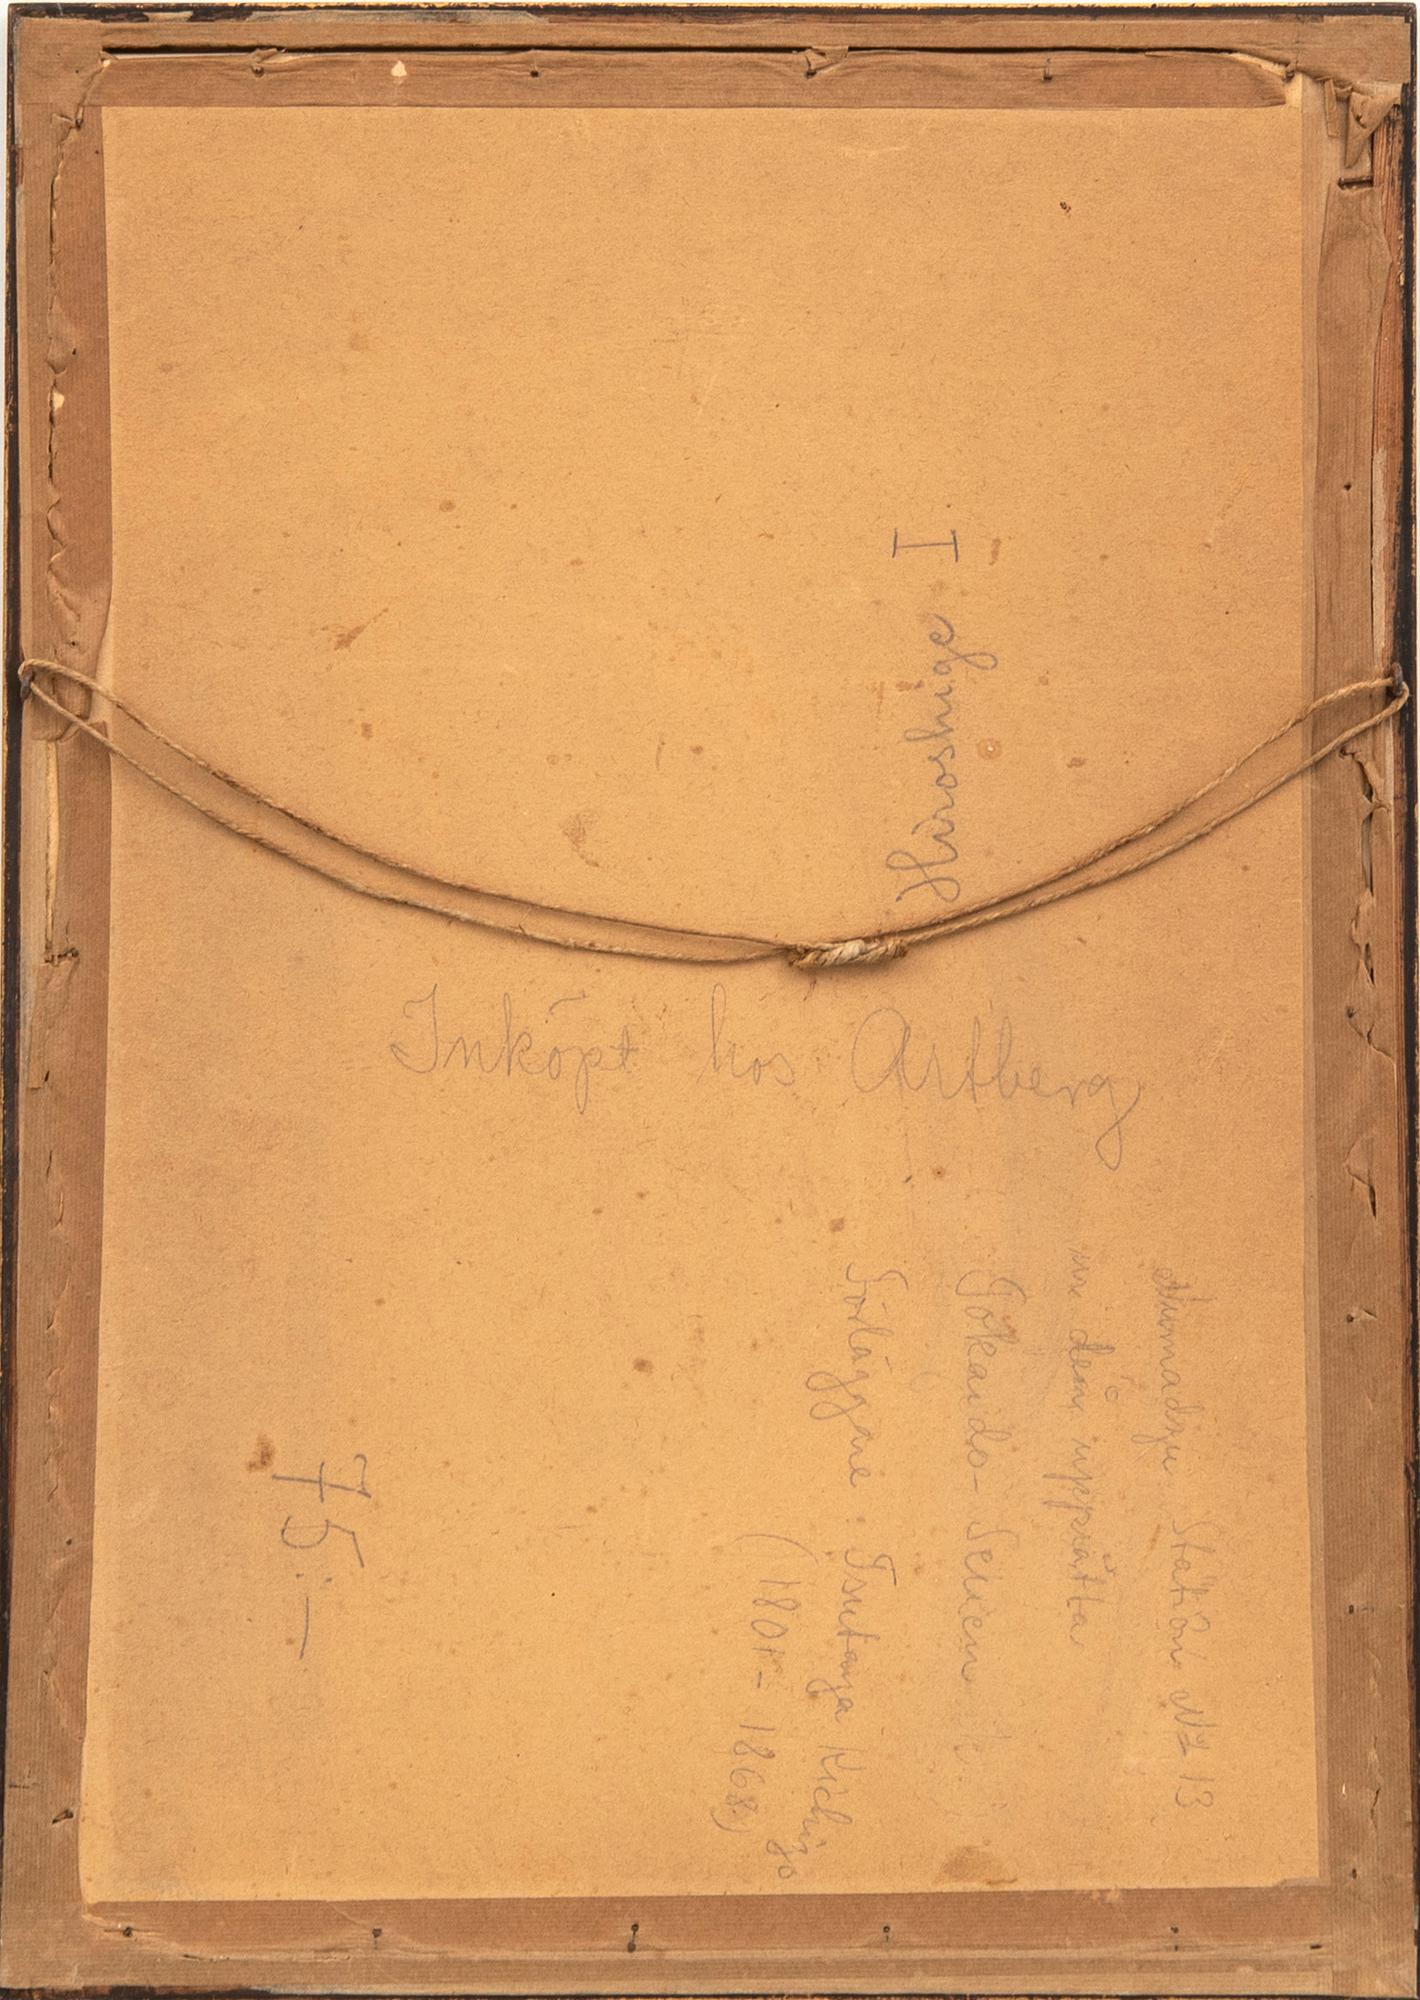 Hiroshige I
Inköpt hos Artberg
Numadzu Station No 13
ur den upprätta
Tokaido-Serien
Förläggare: Tsutaya Kichizo
(1801-1868)
75:-